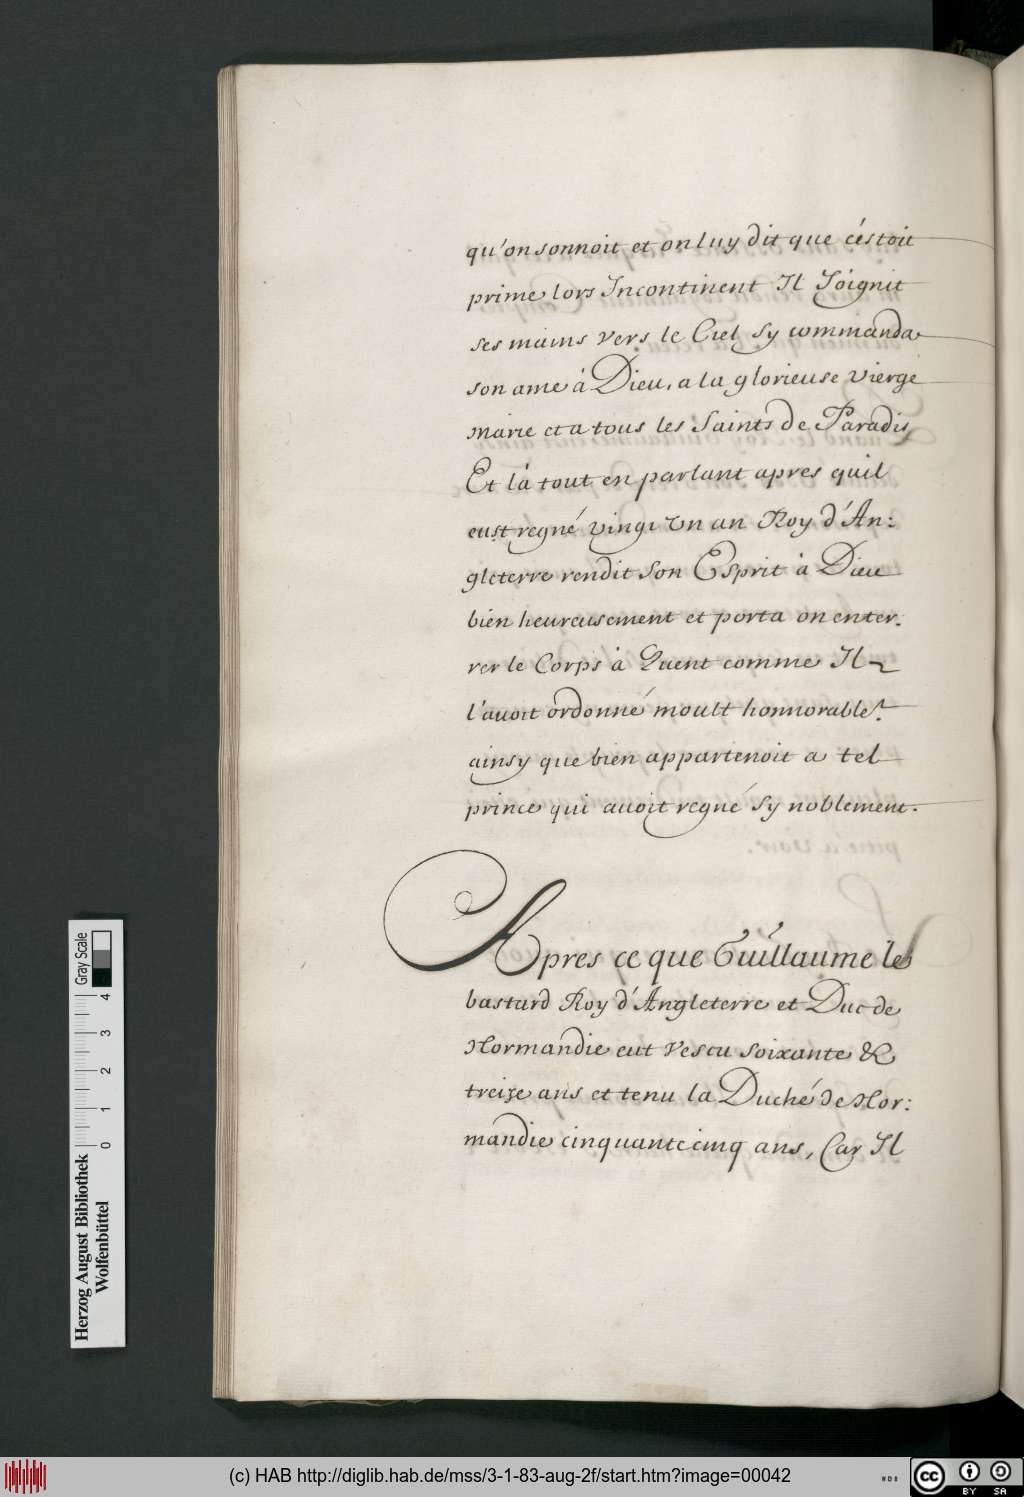 qu'on sonnoit et on luy dit que c'éstoit
prime lors Incontinent Il Joignit
ses mains vers le Ciel sy commanda
son ame à Dieu, a la glorieuse vierge
Marie et a tous les Saints de Paradis
Et là tout en parlant apres quil
eust regné vingt un an Roy d'An:
gleterre rendit son Esprit à Dieu
bien heureusement et porta on enter.
rer le Corps à Quent comme Il
l'avoit ordonné moult honnorable.t
ainsy que bien appartenoit a tel
prince qui avoit regné sy noblement.
Apres ce que Guillaume le
bastard Roy d'Angleterre et Duc de
Normandie eut Vescu soixante &
treize ans et tenu la Duché de Nor:
mandie cinquante cinq ans, Car Il
Herzog August Bibliothek
Wolfenbüttel
0 1 2 3 4
Gray Scale
(c) HAB http://diglib.hab.de/mss/3-1-83-aug-2f/start.htm?image=00042
WDB
cc
BY SA